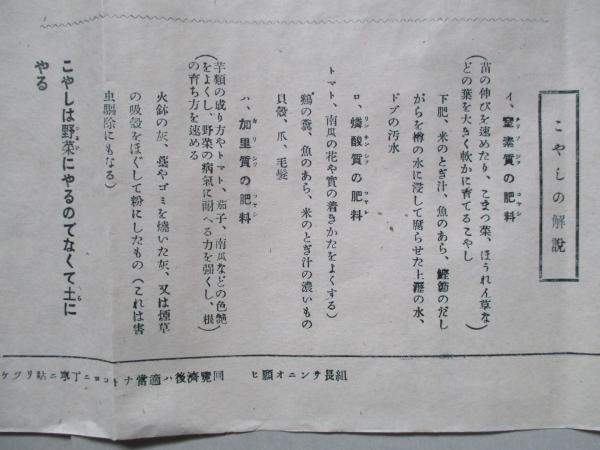 こやしの解說
イ、窒素質の肥料
(苗の伸びを速めたり、こまつ菜、ほうれん草な
どの葉を大きく軟かに育てるこやし)
下肥、米のとぎ汁、魚のあら、鰹節のだし
がらを樽の水に浸して腐らせた上澄の水、
ドブの汚水
ロ、燐酸質の肥料
トマト、南瓜の花や實の着きかたをよくする)
鷄の糞、魚のあら、米のとぎ汁の濃いもの
貝殼、爪、毛髮
ハ、加里質の肥料
(芋類の成り方やトマト、茄子、南瓜などの色艷
をよくし、野菜の病氣に耐へる力を强くし、根
の育ち方を速める)
火鉢の灰、藁やゴミを燒いた灰、又は煙草
の吸殼をほぐして粉にしたもの(これは害
虫驅除にもなる)
こやしは野菜にやるのでなくて土に
やる
組長サンニオ願ヒ
回覽濟後ハ適當ナトコロニ丁寧ニ貼リツケ